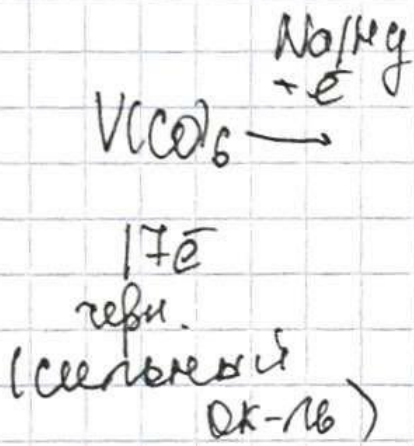 Na/Hg
+ē
V(CO)6 →
17ē
черн.
(сильный
ок-ль)